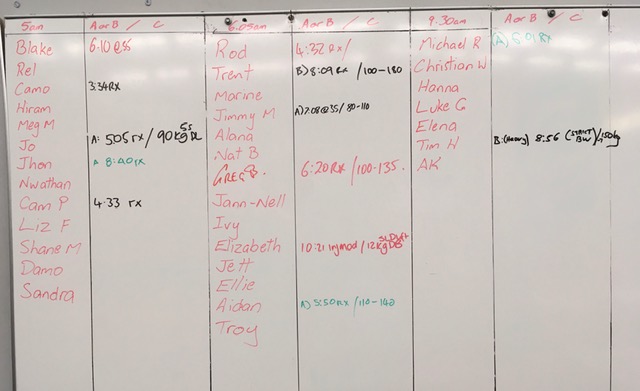 5am A or B / C 6.05am A or B / C 9.30am A or B / C
Blake 6.10 @55
Rel
Camo 3:34 RX
Hiram
Meg M
Jo A: 5.05 rx / 90kg DL
Jhon A 8:40 rx
Nwathan
Cam P 4:33 rx
Liz F
Shane M
Damo
Sandra
Rod 4:32 RX/
Trent B) 8:09 Rx /100-180
Marine
Jimmy M A) 7:08 @35/80-110
Alana
Nat B
Greg B. 6:20 RX /100-135.
Jann-Nell
Ivy
Elizabeth 10:21 inj mod /12kg DB
Jett
Ellie
Aidan A) 5:50 Rx /110-140
Troy
Michael R (A) 6:01 Rx
Christian W
Hanna
Luke G
Elena
Tim H B:(heavy) 8:56 (START BW)/150kg
AK